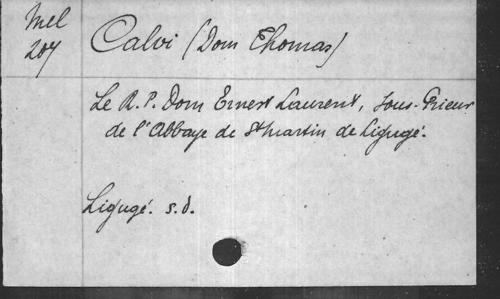 Mel
207
Calvi (Dom Thomas)
Le R. P. Dom Ernest Laurent, sous-Prieur
de l'Abbaye de St Martin de Ligugé.
Ligugé. s.d.